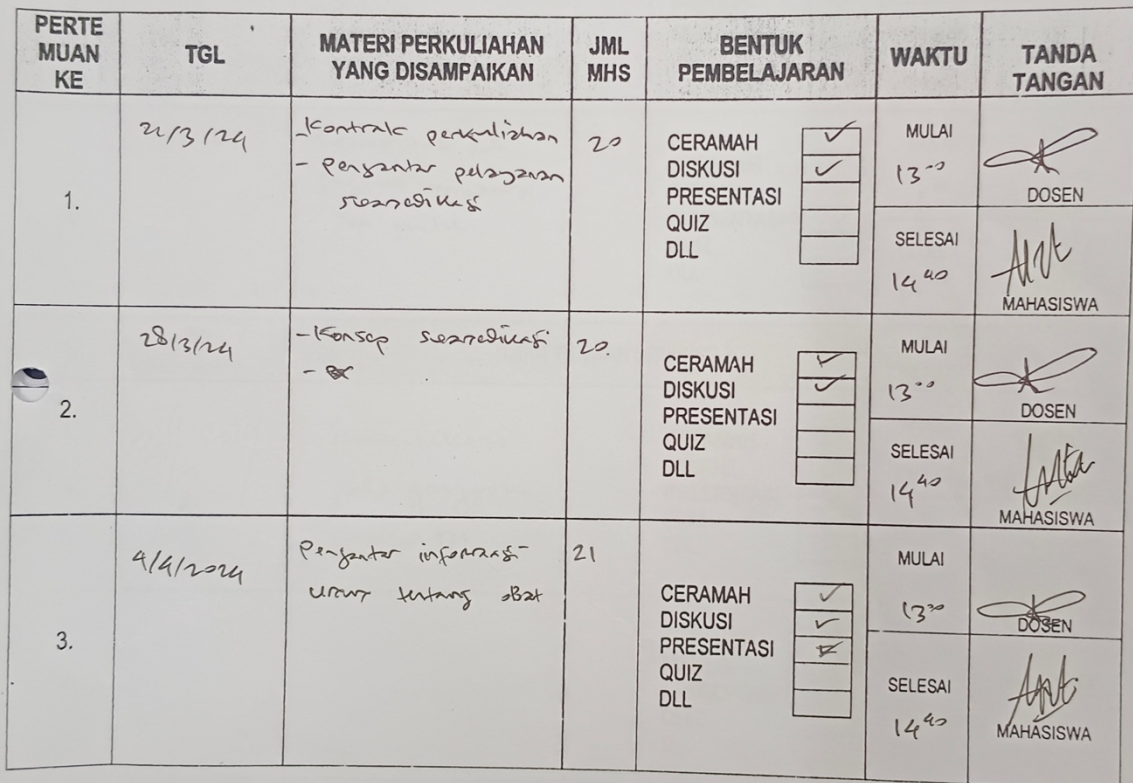 PERTE
MUAN
KE
TGL
MATERI PERKULIAHAN
YANG DISAMPAIKAN
JML
MHS
BENTUK
PEMBELAJARAN
WAKTU
TANDA
TANGAN
1.
21/3/24
- Kontrak perkuliahan
- pengantar pelayanan
swamedikasi
20
CERAMAH ✓
DISKUSI ✓
PRESENTASI
QUIZ
DLL
MULAI
13.00
DOSEN
SELESAI
14 40
MAHASISWA
2.
28/3/24
- Konsep swamedikasi
-
20.
CERAMAH ✓
DISKUSI ✓
PRESENTASI
QUIZ
DLL
MULAI
13.00
DOSEN
SELESAI
14 40
MAHASISWA
3.
4/4/2024
Pengantar informasi
umum tentang obat
21
CERAMAH ✓
DISKUSI ✓
PRESENTASI
QUIZ
DLL
MULAI
DOSEN
SELESAI
14 40
MAHASISWA